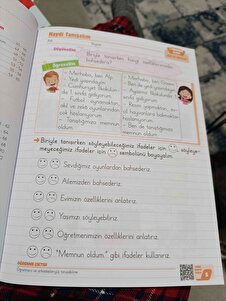 Haydi Tanışalım
Düşünelim
Biriyle tanışırken hangi özelliklerimizden
bahsederiz?
Öğrenelim
Merhaba, ben Alp.
Yedi yaşındayım.
Cumhuriyet İlkokulun-
da 1. sınıfa gidiyorum.
Futbol oynamaktan,
akıl ve zekâ oyunlarından
çok hoşlanıyorum.
Seninle tanıştığımıza
memnun oldum.
Merhaba, ben
Ben de yedi yaşındayım.
Aynı
sınıfa gidiyorum.
Resim yapmaktan,
hoşlanıyorum.
Ben de tanıştığımıza
memnun oldum.
Biriyle tanışırken söyleyebileceğimiz ifadeler için söyleye-
meyeceğimiz ifadeler için sembolünü boyayalım.
Sevdiğimiz oyunlardan bahsederiz.
Ailemizden bahsederiz.
Evimizin özelliklerini anlatırız.
Yaşımızı söyleyebiliriz.
Öğretmenimizin özelliklerini anlatırız.
"Memnun oldum." gibi ifadeler kullanırız.
ÖĞRENME ÇIKTISI